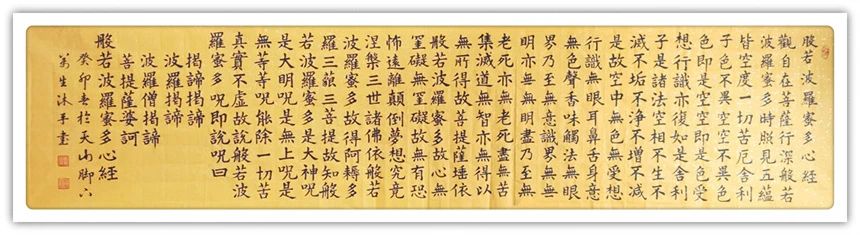 般若波羅蜜多心經
觀自在菩薩行深般若
波羅蜜多時照見五蘊
皆空度一切苦厄舍利
子色不異空空不異色
色即是空空即是色受
想行識亦復如是舍利
子是諸法空相不生不
滅不垢不淨不增不減
是故空中無色無受想
行識無眼耳鼻舌身意
無色聲香味觸法無眼
界乃至無意識界無無
明亦無無明盡乃至無
老死亦無老死盡無苦
集滅道無智亦無得以
無所得故菩提薩埵依
般若波羅蜜多故心無
罣礙無罣礙故無有恐
怖遠離顛倒夢想究竟
涅槃三世諸佛依般若
波羅蜜多故得阿耨多
羅三藐三菩提故知般
若波羅蜜多是大神呪
是大明呪是無上呪是
無等等呪能除一切苦
真實不虛故說般若波
羅蜜多呪即說呪曰
揭諦揭諦
波羅揭諦
波羅僧揭諦
菩提薩婆訶
般若波羅蜜多心經
癸卯春於天山腳下
生沐手書